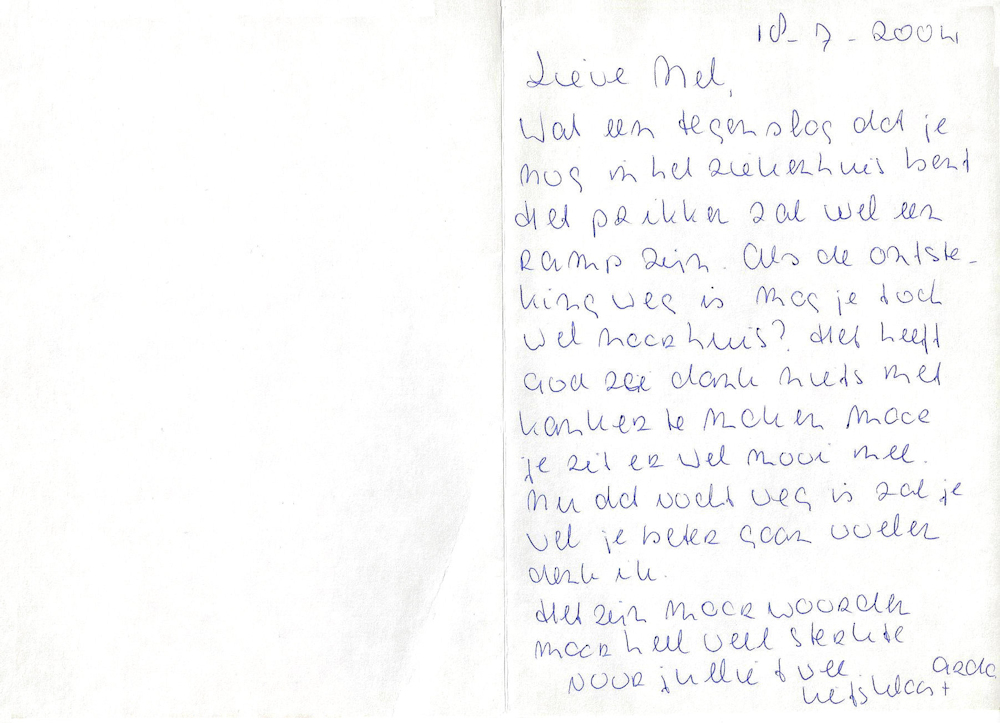 18-7-2004
Lieve Mel,
Wat een tegenslag dat je
nog in het ziekenhuis bent
Het prikken zal wel een
ramp zijn. Als de ontste-
king weg is mag je toch
wel naar huis? Het heeft
God zei dank niets met
kanker te maken maar
je zit er wel mooi mee.
Nu dat vocht weg is zal je
wel je beter gaan voelen
denk ik.
Het zijn maar woorden
maar heel veel sterkte
voor jullie twee.
liefs